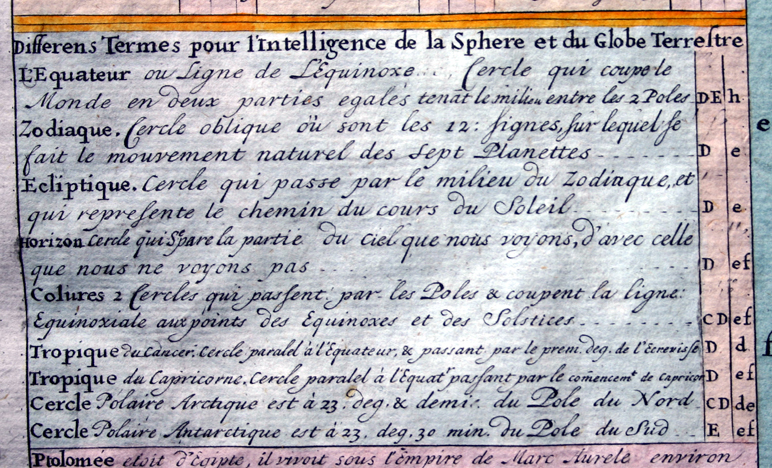 Differens Termes pour l'Intelligence de la Sphere et du Globe Terreſtre
L'Equateur ou Ligne de L'Equinoxe... Cercle qui coupe le
Monde en deux parties egales tenāt le milieu entre les 2 Poles DE h
Zodiaque. Cercle oblique où sont les 12: ſignes, ſur lequel ſe
fait le mouvement naturel des Sept Planettes D e
Ecliptique. Cercle qui passe par le milieu du Zodiaque, et
qui repreſente le chemin du cours du Soleil. D e
Horizon Cercle qui Separe la partie du Ciel que nous voyons, d'avec celle
que nous ne voyons pas D ef
Colures 2 Cercles qui paſſent par les Poles & coupent la ligne
Equinoxiale aux points des Equinoxes et des Solstices CD ef
Tropique du Cancer. Cercle paralel à l'Equateur, & passant par le prem. deg. de l'Ecreviſſe D d
Tropique du Capricorne. Cercle paralel à l'Equatr passant par le comencemt de Capricor D ef
Cercle Polaire Arctique est à 23. deg. & demi. du Pole du Nord CD de
Cercle Polaire Antarctique est à 23. deg. 30 min. du Pole du Sud E ef
Ptolomée etoit d'Egipte, il vivoit sous l'empire de Marc Aurele environ
e
f